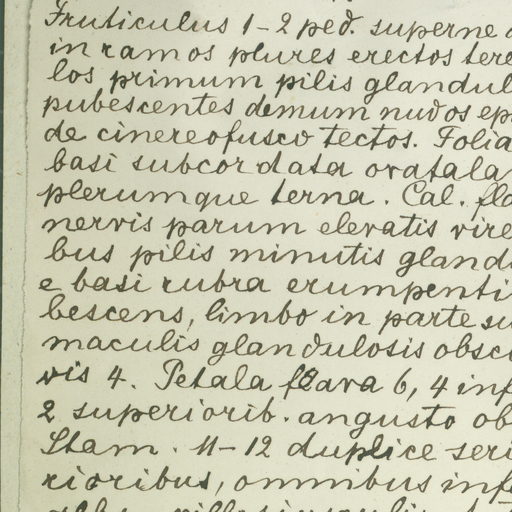 Fruticulus 1-2 ped. superne
in ramos plures erectos tere
los primum pilis glandul
pubescentes demum nudos ep
de cinereofusco tectos. Folia
basi subcordata ovatala
plerumque terna. Cal. fla
nervis parum elevatis vire
bus pilis minutis gland
e basi rubra erumpenti
bescens, limbo in parte su
maculis glandulosis obsc
vis 4. Petala flava 6, 4 inf
2 superiorib. angusto ob
Stam. 11-12 duplice seri
rioribus, omnibus inf